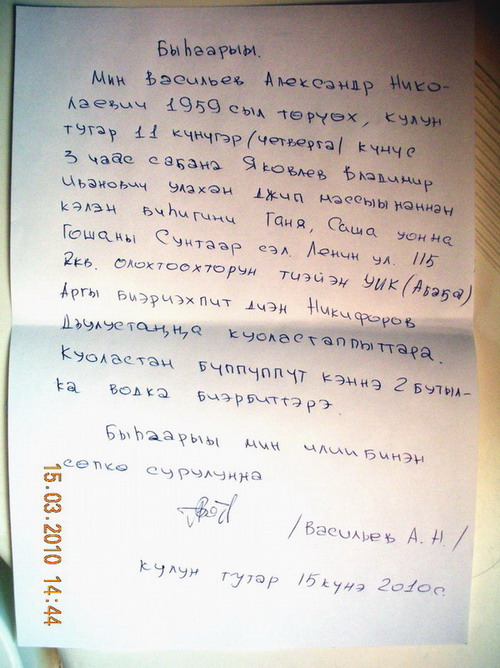 Быһаарыы.
Мин Васильев Александр Нико-
лаевич 1959 сыл төрүөх, кулун
тутар 11 күнүгэр /четверга/ күнүс
3 чаас саҕана Яковлев Владимир
Иванович улахан джип массыынаннан
кэлэн биһигини Ганя, Саша уонна
Гошаны Сунтаар сэл. Ленин ул. 115
2кв. олохтоохторун тиэйэн УИК (Абаҕа)
Аргы биэриэхпит диэн Никифоров
Дьулустаңңа куоластаппыттара.
Куоластан бүппүппүт кэннэ 2 бутыл-
ка водка биэрбиттэрэ.
Быһаарыы мин илиибинэн
сөпкө сурулунна
/Васильев А. Н./
кулун тутар 15 күнэ 2010с.
15.03.2010 14:44